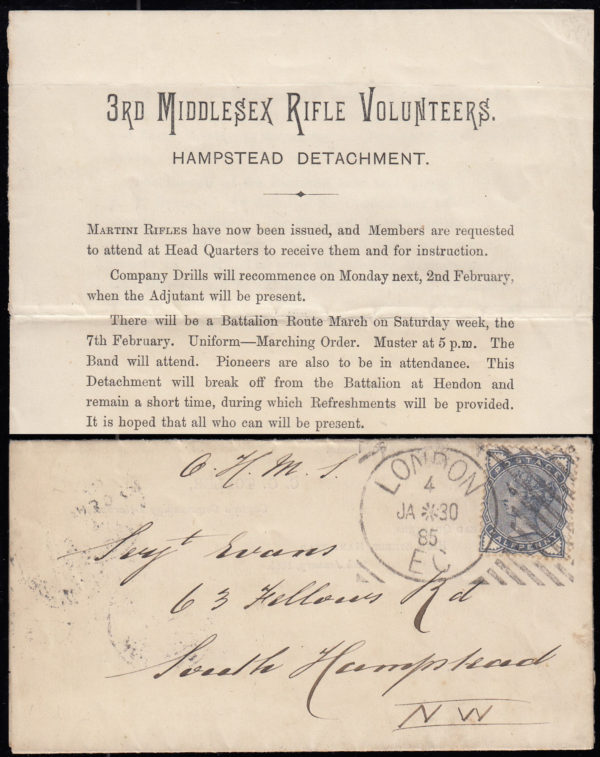 3RD MIDDLESEX RIFLE VOLUNTEERS.
HAMPSTEAD DETACHMENT.
MARTINI RIFLES have now been issued, and Members are requested
to attend at Head Quarters to receive them and for instruction.
Company Drills will recommence on Monday next, 2nd February,
when the Adjutant will be present.
There will be a Battalion Route March on Saturday week, the
7th February. Uniform—Marching Order. Muster at 5 p.m. The
Band will attend. Pioneers are also to be in attendance. This
Detachment will break off from the Battalion at Hendon and
remain a short time, during which Refreshments will be provided.
It is hoped that all who can will be present.
O. H. M. S.
LONDON
4
JA 30
85
E.C
POSTAGE
HALFPENNY
Sergt Evans
63 Fellows Rd
South Hampstead
NW